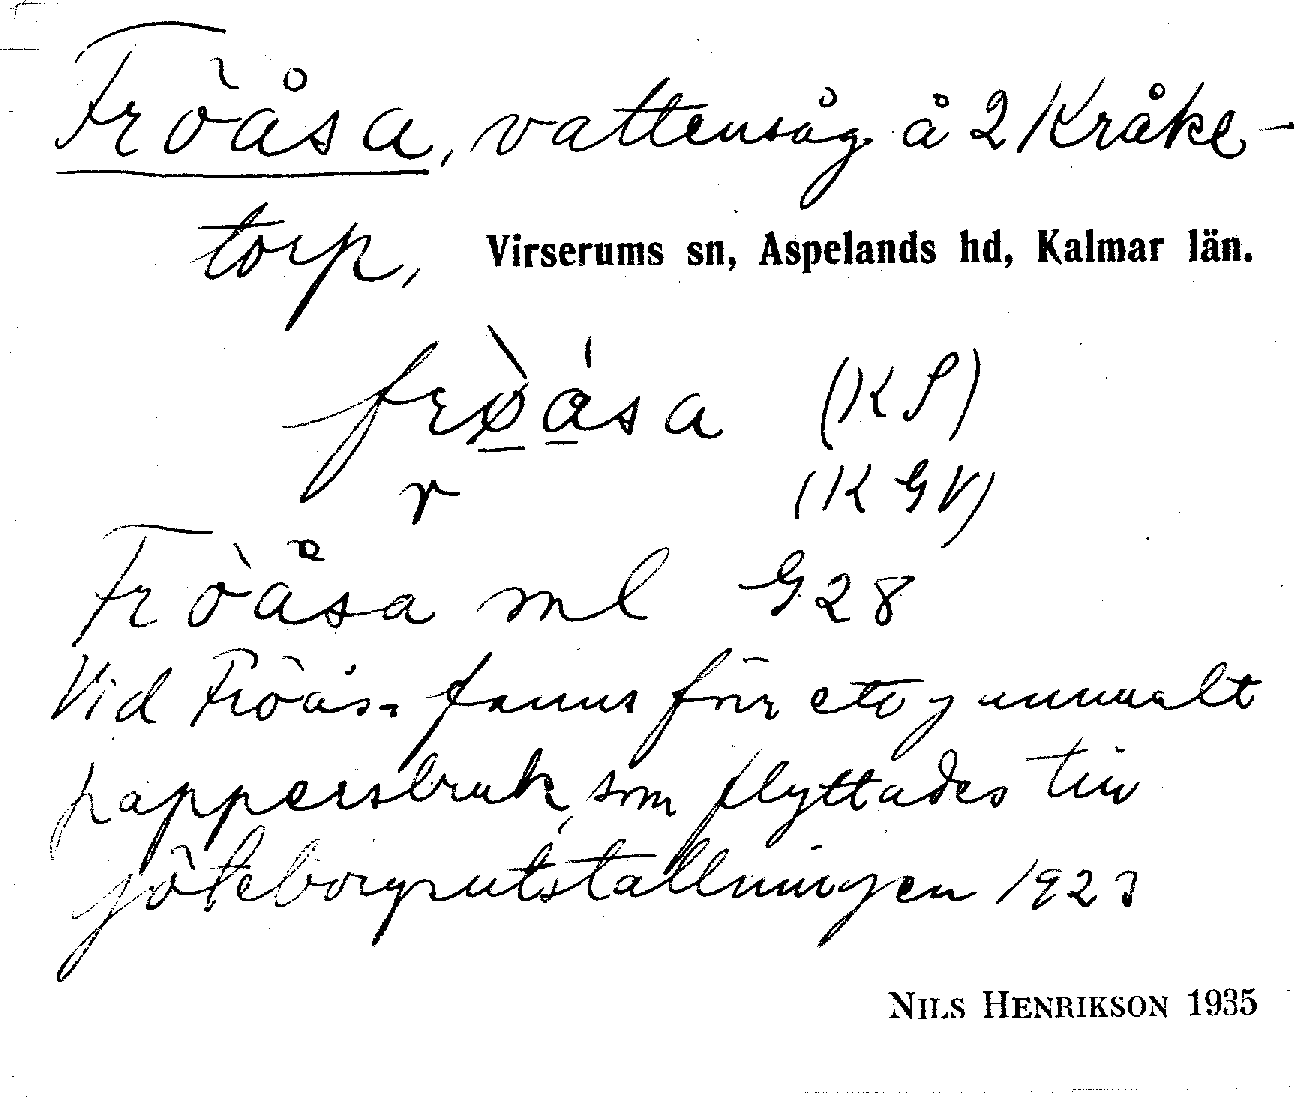 Fröåsa, vattensåg å 2 Kråke-
torp, Virserums sn, Aspelands hd, Kalmar län.
frø̀åsa (KS)
r (KGV)
Fröåsa ml G28
Vid Fröåsa fanns förr ett gammalt
pappersbruk, som flyttades till
Göteborgsutställningen 1923
NILS HENRIKSON 1935